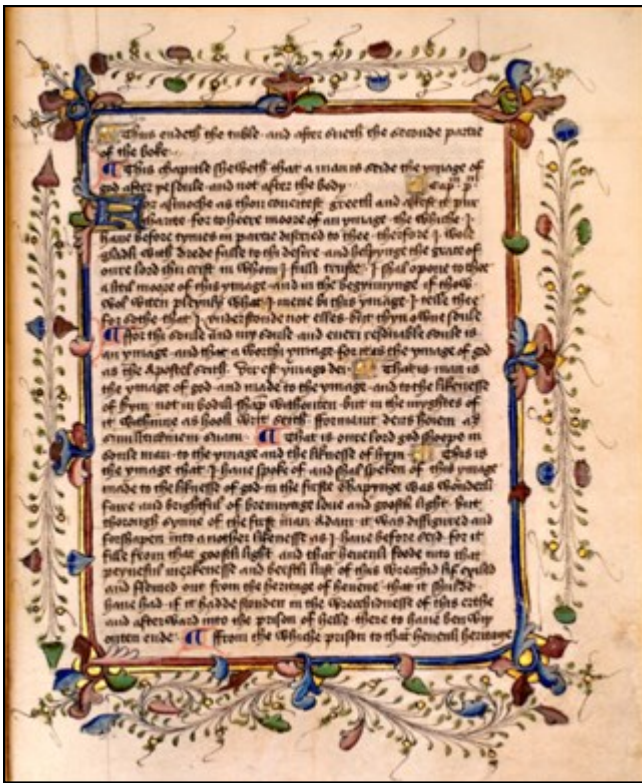 Thus endeth the table · and after sueth the seconde partie
of the boke
¶ This chapitle sheweth that a man is seide the ymage of
god after pe soule · and not after the body Capm pm
For asmoche as thou coueitest greetli and askest it pur
charite · for to heere moore of an ymage · the whiche I
haue before tymes in partie discried to thee · therfore I wole
gladli with drede falle to thi desire · and helpynge the grace of
oure lord ihu crist in whom I fulli truste · I shal opene to thee
a litel moore of this ymage · and in the begynnynge if thow
wol witen pleynly what I mene bi this ymage · I telle thee
for sothe that I vnderstonde not elles · but thyn owne soule
¶ ffor thi soule and my soule and eueri resonable soule is
an ymage · and that a worthi ymage · for it is the ymage of god
as the apostel seith · Vir est ymago dei · That is man is
the ymage of god · and made to the ymage · and to the likenesse
of hym · not in bodili shap withouten · but in the myghtes of
it withinne as hooli writ seith · fformauit deus hominem ad
similitudinem suam · ¶ That is oure lord god shoope in
soule man · to the ymage and the liknesse of hym · This is
the ymage that I haue spoke of and shal speken of this ymage
made to the liknesse of god · in the firste shapynge was wonderli
faire and brightful of brennynge loue and goostli light · but
thorough synne of the first man Adam · it was disfigured and
forshapen into another likenesse as I haue before seid · for it
fille from that goostli light · and that heuenli foode into that
peyneful merkenesse and beestli lust of this wrecchid lif exiled
and flemed out from the heritage of heuene · that it shulde
haue had if it hadde stonden in the wrecchidnesse of this erthe
and afterward into the prison of helle · there to haue ben wip
outen ende · ¶ ffrom the whiche prison to that heuenli heritage